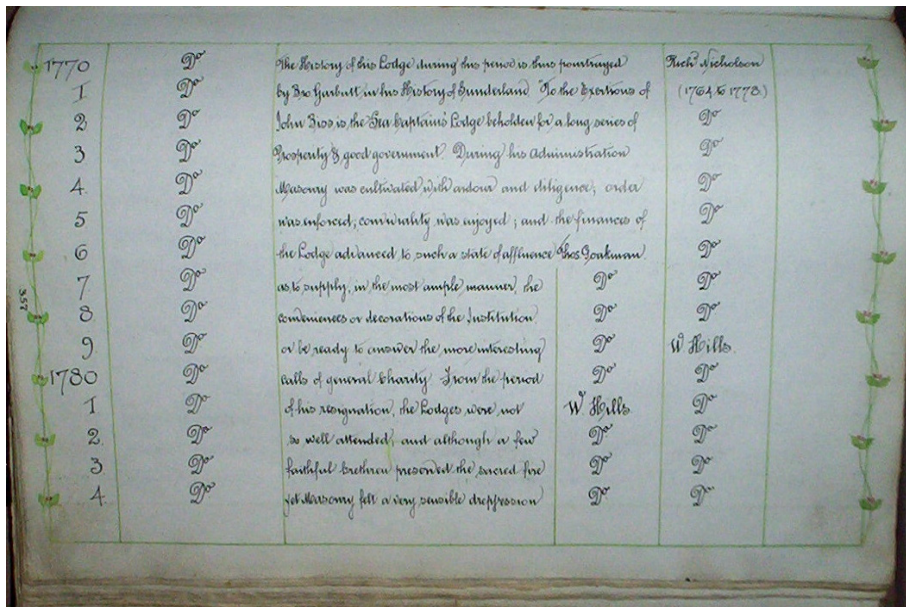 1770 Do The History of this Lodge during this period is thus pourtrayed Richd Nicholson
1 Do by Bro Garbutt, in his History of Sunderland "To the Exertions of (1764 to 1778.)
2 Do John Biss, is the Sea Captains' Lodge beholden for a long series of Do
3 Do Prosperity & good government. During his Administration Do
4. Do Masonry was cultivated with ardour and diligence; order Do
5 Do was enforced; conviviality was enjoyed; and the finances of Do
6 Do the Lodge advanced to such a state of affluence Thos Do
7 Do as to supply, in the most ample manner, the Do Do
8 Do conveniences or decorations of the Institution Do Do
9 Do or be ready to answer the more interesting Do W Hills.
1780 Do calls of general Charity From the period Do Do
1 Do of his resignation, the Lodges were not W Hills Do
2. Do so well attended; and although a few Do Do
3 Do faithful brethren preserved the sacred fire Do Do
4. Do yet Masonry felt a very sensible depression Do Do
357